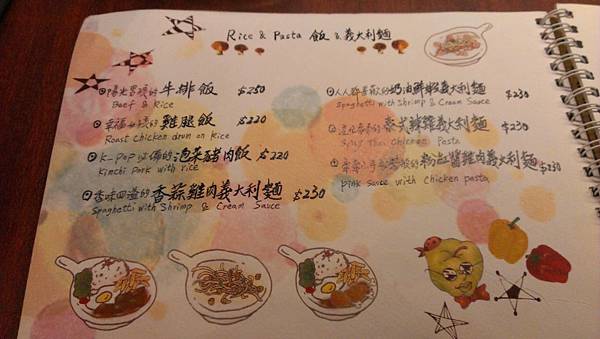 Rice & Pasta 飯 & 義大利麵
牛排飯 $250
Beef & Rice
雞腿飯 $220
Roast Chicken drum on Rice
K-Pop 必備的泡菜豬肉飯 $220
Kimchi Pork with rice
香味四溢的香蒜雞肉義大利麵 $230
Spaghetti with Shrimp & Cream Sauce
奶油鮮蝦義大利麵 $230
Spaghetti with Shrimp & Cream Sauce
泰式辣雞義大利麵 $230
Spicy Thai Chicken Pasta
粉紅醬雞肉義大利麵 $230
Pink sauce with Chicken pasta